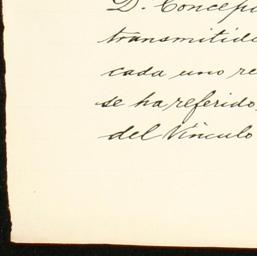 D. Concepci
transmitid
cada uno re
se ha referido,
del Vínculo